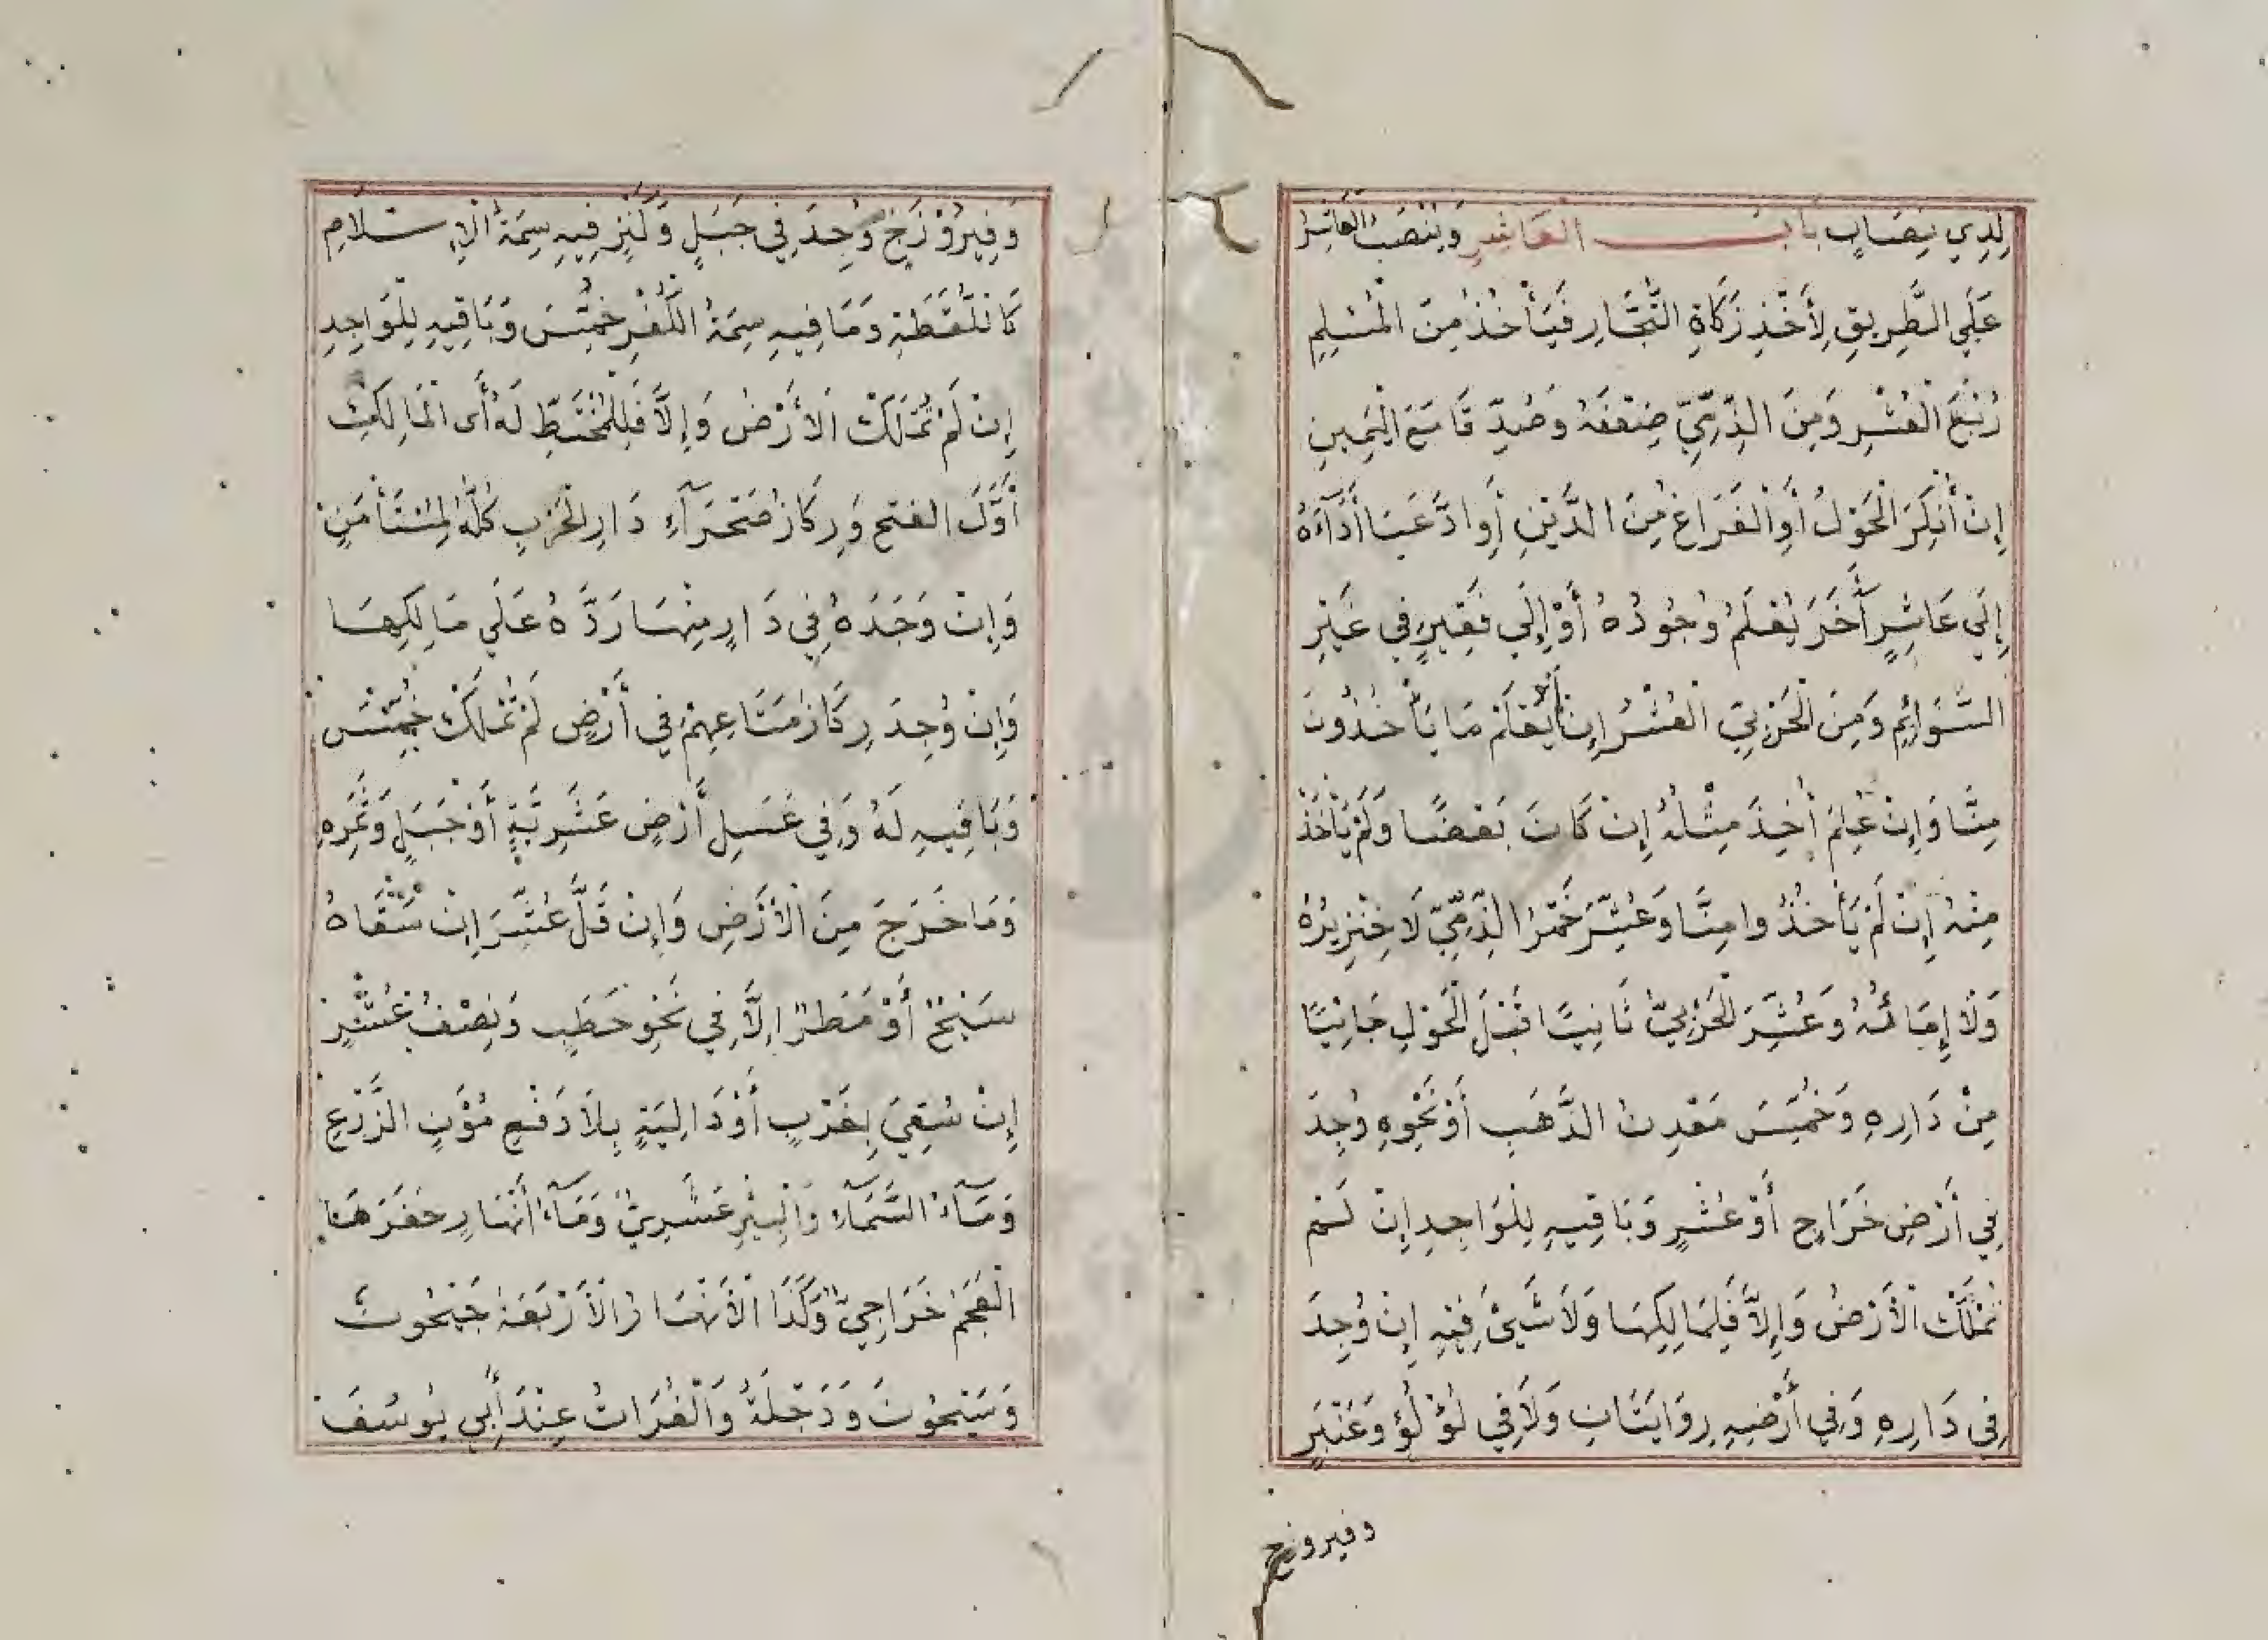 لِذِي نِصَابٍ بَابُ الْعَاشِرِ وَيُنْصَبُ الْعَاشِرُ
عَلَى الطَّرِيقِ لِأَخْذِ زَكَاةِ التُّجَّارِ فَيَأْخُذُ مِنَ الْمُسْلِمِ
رُبْعَ الْعُشْرِ وَمِنَ الذِّمِّيِّ ضِعْفَهُ وَصُدِّقَا مَعَ الْيَمِينِ
إِنْ أُنْكِرَ الْحَوْلُ أَوِ الْفَرَاغُ مِنَ الدَّيْنِ أَوِ ادَّعَيَا أَدَآءَهُ
إِلَى عَاشِرٍ آخَرَ يُعْلَمُ وُجُودُهُ أَوْ إِلَى فَقِيرٍ فِي غَيْرِ
السَّوَائِمِ وَمِنَ الْحَرْبِيِّ الْعُشْرُ إِنْ لَمْ يُعْلَمْ مَا يَأْخُذُونَ
مِنَّا وَإِنْ عُلِمَ أُخِذَ مِثْلُهُ إِنْ كَانَ بَعْضًا وَلَمْ يَأْخُذْ
مِنْهُ إِنْ لَمْ يَأْخُذُوا مِنَّا وَعُشِّرَ خَمْرُ الذِّمِّيِّ لَا خِنْزِيرُهُ
وَلَا أَمَانَتُهُ وَعُشِّرَ الْحَرْبِيُّ ثَانِيًا قَبْلَ الْحَوْلِ جَائِيًا
مِنْ دَارِهِ وَخُمِّسَ مَعْدِنُ الذَّهَبِ أَوْ نَحْوِهِ وُجِدَ
فِي أَرْضِ خَرَاجٍ أَوْ عُشْرٍ وَبَاقِيهِ لِلْوَاجِدِ إِنْ لَمْ
تُمْلَكْ الْأَرْضُ وَإِلَّا فَلِمَالِكِهَا وَلَا شَيْئَ فِيْهِ إِنْ وُجِدَ
فِي دَارِهِ وَفِي أَرْضِهِ رِوَايَتَانِ وَلَا فِي لُؤْلُؤٍ وَعَنْبَرٍ
وفيروزج
وَفِيرُوْزَجٍ وُجِدَ فِي جَبَلٍ وَكَنْزٌ فِيهِ سِمَةُ الْإِسْلَامِ
كَاللُّقَطَةِ وَمَا فِيهِ سِمَةُ الْكُفْرِ خُمِّسَ وَبَاقِيهِ لِلْوَاجِدِ
إِنْ لَمْ تُمْلَكْ الْأَرْضُ وَإِلَّا فَلِلْمُخْتَطِّ لَهُ أَى الْمَالِكِ
أَوَّلَ الفتح وَرِكَازُ صَحْرَآءِ دَارِ الْحَرْبِ كُلُّهُ لِمُسْتَأْمَنٍ
وَإِنْ وَجَدَهُ فِي دَارٍ مِنْهَا رَدَّهُ عَلَى مَالِكِهَا
وَإِنْ وُجِدَ رِكَازُ مَتَاعِهِمْ فِي أَرْضٍ لَمْ تُمْلَكْ خُمِّسَ
وَبَاقِيهِ لَهُ وَفِي عَسَلِ أَرْضٍ عُشْرِيَّةٍ أَوْ جَبَلٍ وَثَمَرِهِ
وَمَا خَرَجَ مِنَ الْأَرْضِ وَإِنْ قَلَّ عُشْرٌ إِنْ سَقَاهُ
سَيْحٌ أَوْ مَطَرٌ إِلَّا فِي نَحْوِ حَطَبٍ وَنِصْفُ عُشْرٍ
إِنْ سُقِيَ بِغَرْبٍ أَوْ دَالِيَةٍ بِلَا دَفْعِ مُؤَنِ الزَّرْعِ
وَمَآءُ السَّمَآءِ وَالْبِئْرِ عُشْرِيٌّ وَمَآءُ أَنْهَارٍ حَفَرَهَا
الْعَجَمُ خَرَاجِيٌّ وَكَذَا الْأَنْهَارُ الْأَرْبَعَةُ جَيْحُونُ
وَسَيْحُونَ وَدَجْلَةُ وَالْفُرَاتُ عِنْدَ أَبِي يُوسُفَ